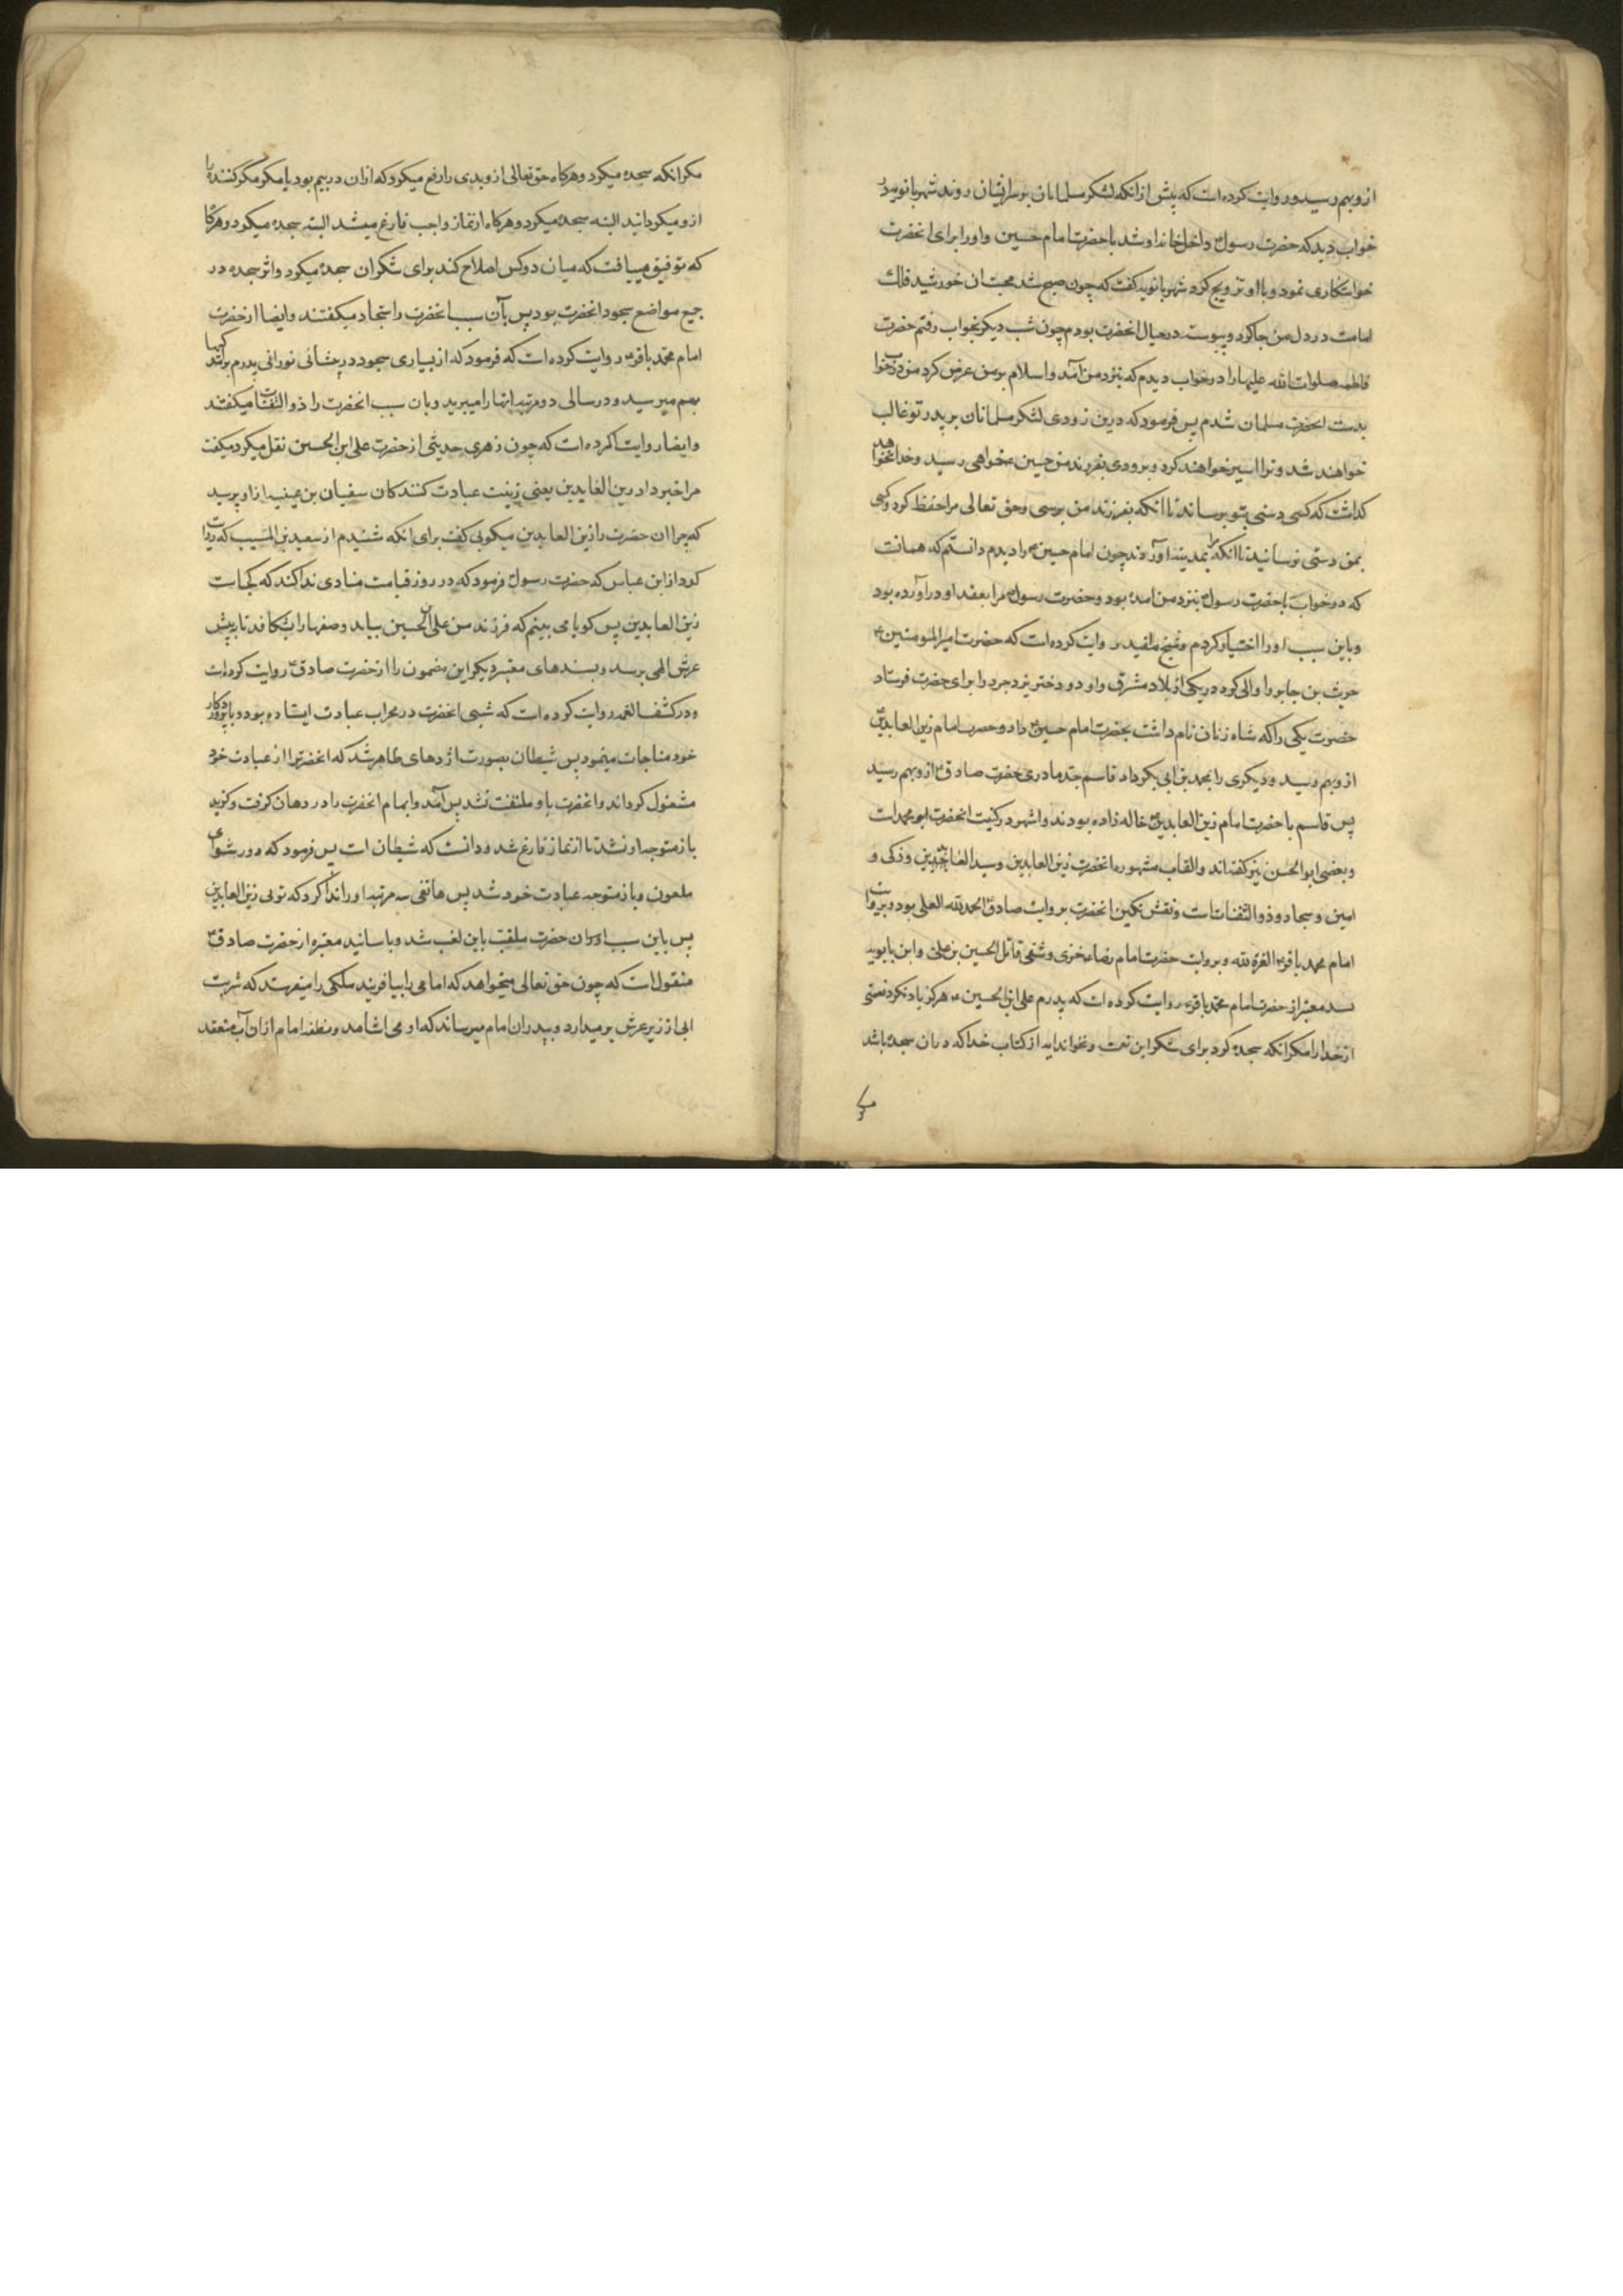 ازو بهم رسید و روایت کرده است که پیش از انکه لشکر مسلمانان بر سر ایشان روند شهربانو در
خواب دید که حضرت رسول داخل خانه او شد با حضرت امام حسین و او را برای انحضرت
خواستکاری نمود و با او تزویج کرد شهربانو کفت که چون صبح شد محبت ان خورشید فلک
امامت در دل من جا کرد و پیوسته در خیال انحضرت بودم چون شب دیکر بخواب رفتم حضرت
فاطمه صلوات الله علیها را در خواب دیدم که بنزد من آمد و اسلام بر من عرض کرد من در خواب
بدست انحضرت مسلمان شدم پس فرمود که درین زودی لشکر مسلمانان بر پدر تو غالب
خواهند شد و ترا اسیر خواهند کرد و بزودی بفرزند من حسین خواهی رسید و خدا نخواهد
کذاشت که کسی دستی بتو برساند تا انکه بفرزند من برسی و حق تعالی مرا حفظ کرد و کسی
بمن دستی نرسانید تا انکه مرا بمدینه اوردند چون امام حسین را دیدم دانستم که همانست
که در خواب با حضرت رسول بنزد من امده بود و حضرت رسول مرا بعقد او دراورده بود
و باین سبب او را اختیار کردم و شیخ مفید روایت کرده است که حضرت امیر المومنین ع
حریث بن جابر را والی کرد در یکی از بلاد مشرق و او دو دختر یزدجرد را برای حضرت فرستاد
حضرت یکی را که شاه زنان نام داشت بحضرت امام حسین داد و حضرت امام زین العابدین
ازو بهم رسید و دیکری را بمحمد بن ابی بکر داد قاسم جد مادری حضرت صادق ازو بهم رسید
پس قاسم با حضرت امام زین العابدین خاله زاده بودند و اشهر در کنیت انحضرت ابو محمد است
و بعضی ابو الحسن نیز کفته اند و القاب مشهوره انحضرت زین العابدین و سید العابدین و زکی و
امین و سجاد و ذو الثفنات است و نقش نکین انحضرت بروایت صادق الحمد لله العلی بود و بروایت
امام محمد باقر العزة لله و بروایت حضرت امام رضا خزی و شقی قاتل الحسین بن علی و ابن بابویه
بسند معتبر از حضرت امام محمد باقر روایت کرده است که پدرم علی ابن الحسین هرکز یاد نکرد نعمتی
از خدا را مکر انکه سجده کرد برای شکر این نعمت و نخواند ایه از کتاب خدا که در ان سجده باشد
مکر انکه سجده میکرد و هرکاه حق تعالی ازو بدی را رفع میکرد که ازان در بیم بود یا مکر مکر کننده را
ازو میکردانید البته سجده میکرد و هرکاه از نماز واجب فارغ میشد البته سجده میکرد و هرکاه
که توفیق مییافت که میان دو کس اصلاح کند برای شکر ان سجده میکرد و اثر سجده در
جمیع مواضع سجود انحضرت بود پس بآن سبب انحضرت را سجاد میکفتند و ایضا از حضرت
امام محمد باقر روایت کرده است که فرمود که از بسیاری سجود در پیشانی نورانی پدرم
بهم میرسید و در سالی دو مرتبه انها را میبرید و بان سبب انحضرت را ذو الثفنات میکفتند
و ایضا روایت کرده است که چون زهری حدیثی از حضرت علی ابن الحسین نقل میکرد میکفت
مرا خبر داد زین العابدین یعنی زینت عبادت کنندکان سفیان بن عیینه از او پرسید
که چرا ان حضرت را زین العابدین میکویی کفت برای انکه شنیدم از سعید بن المسیب که روایت
کرد از ابن عباس که حضرت رسول فرمود که در روز قیامت منادی ندا کند که کجاست
زین العابدین پس کویا می بینم که فرزند من علی ابن الحسین بیاید و صفها را بشکافد تا به پیش
عرش الهی برسد و بسندهای معتبر دیکر این مضمون را از حضرت صادق روایت کرده است
و در کشف الغمه روایت کرده است که شبی انحضرت در محراب عبادت ایستاده بود و با پروردکار
خود مناجات مینمود پس شیطان بصورت اژدهای ظاهر شد که انحضرت را از عبادت خود
مشغول کرداند و انحضرت باو ملتفت نشد پس آمد و ابهام انحضرت را در دهان کرفت و کزید
باز متوجه او نشد تا از نماز فارغ شد و دانست که شیطان است پس فرمود که دور شو ای
ملعون و باز متوجه عبادت خود شد پس هاتفی سه مرتبه او را ندا کرد که توئی زین العابدین
پس باین سبب ان حضرت ملقب باین لقب شد و باسانید معتبره از حضرت صادق ع
منقول است که چون حق تعالی میخواهد که امامی را بیافریند ملکی را میفرستد که شربت
ابی از زیر عرش برمیدارد و بپدر ان امام میرساند که او می اشامد و نطفه امام ازان آب منعقد